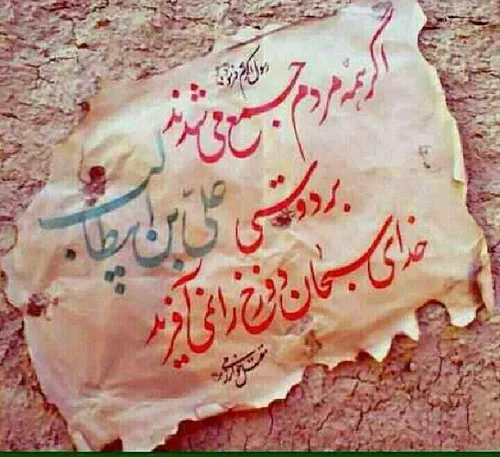 رسول اکرم فرمود:
اگر همهٔ مردم جمع می شدند
بر دوستی علی بن ابیطالب
خدای سبحان دوزخ را نمی آفرید